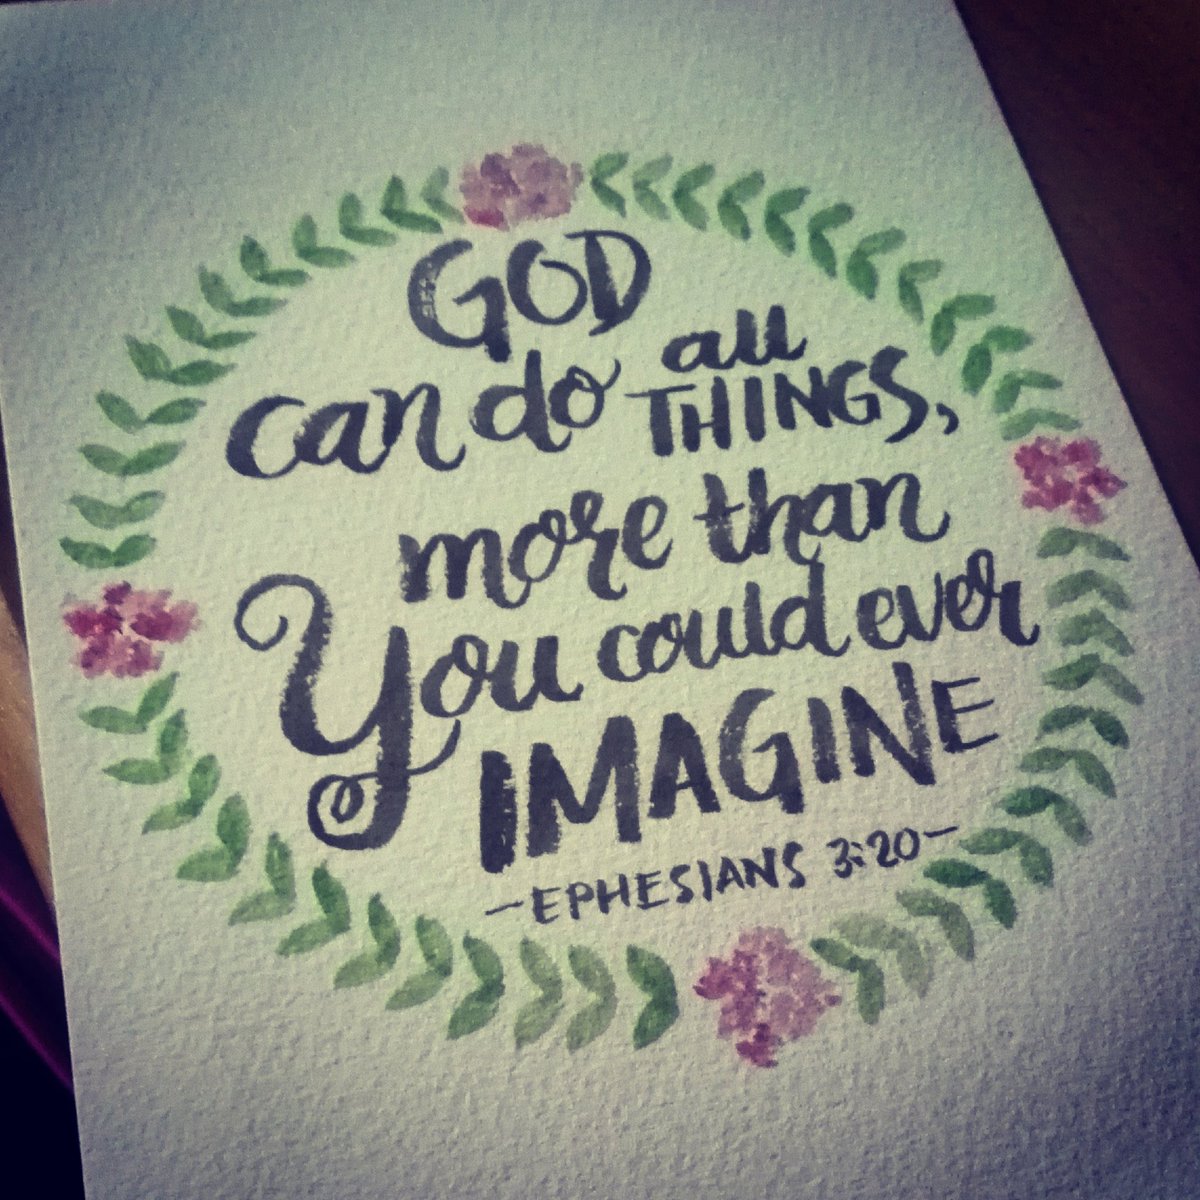 GOD
can do all THINGS,
more than
You could ever
IMAGINE
-EPHESIANS 3:20-